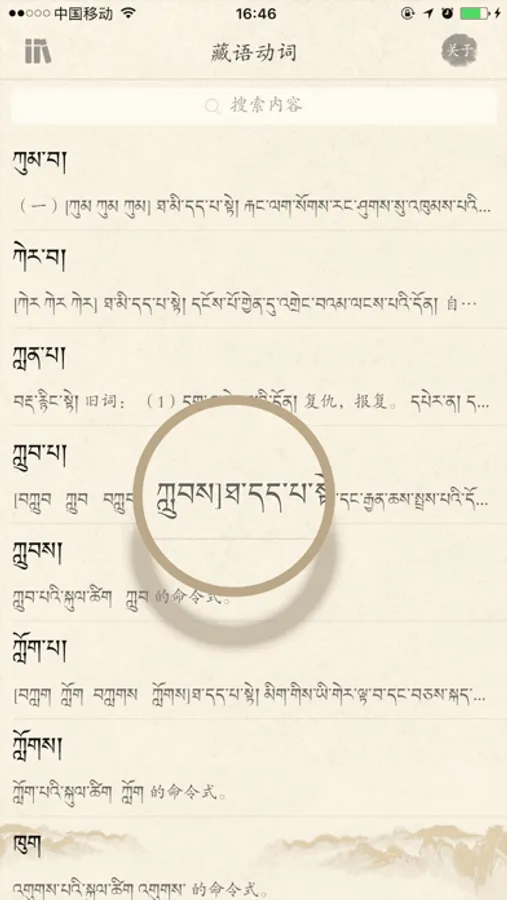 中国移动 16:46
藏语动词 关于
搜索内容
ཀུམ་བ།
（一）[ཀུམ ཀུམ ཀུམ] ཐ་མི་དད་པ་སྟེ། རྐང་ལག་སོགས་རང་ཤུགས་སུ་འཁུམས་པའི...
ཀེར་བ།
[ཀེར ཀེར ཀེར] ཐ་མི་དད་པ་སྟེ། དངོས་པོ་གྱེན་དུ་འགྲེང་བའམ་ལངས་པའི་དོན། 自…
ཀླན་པ།
བརྡ་རྙིང་སྟེ། 旧词：（1） དོན། 复仇，报复。 དཔེར་ན། ད...
ཀླུབ་པ།
[བཀླུབ ཀླུབ ཀླུབས]ཐ་དད་པ་སྟེ དང་རྒྱན་ཆས་སྤྲས་པའི་དོ...
ཀླུབས།
ཀླུབ་པའི་སྐུལ་ཚིག ཀླུབ 的命令式。
ཀློག་པ།
[བཀླག ཀློག བཀླགས ཀློགས]ཐ་དད་པ་སྟེ། མིག་གིས་ཡི་གེར་ལྟ་བ་དང་བཅས་སྐད་...
ཀློགས།
ཀློག་པའི་སྐུལ་ཚིག ཀློག 的命令式。
ཁུག
འགུགས་པའི་སྐུལ་ཚིག འགུགས་ 的命令式。